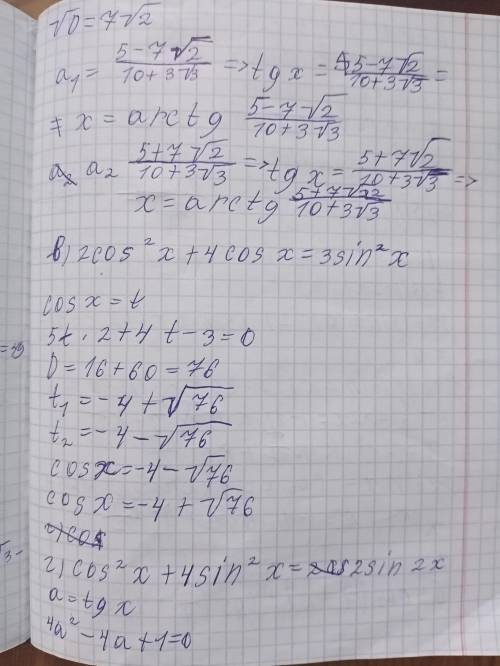 √D = 7√2
a₁ = (5-7√2)/(10+3√3) => tg x = (5-7√2)/(10+3√3) =
≠ x = arctg (5-7√2)/(10+3√3)
a₂ (5+7√2)/(10+3√3) => tg x = (5+7√2)/(10+3√3) =>
x = arctg (5+7√2)/(10+3√3)
в) 2cos²x + 4cos x = 3sin²x
cos x = t
5t · 2 + 4t - 3 = 0
D = 16 + 60 = 76
t₁ = -4 + √76
t₂ = -4 - √76
cos x = -4 - √76
cos x = -4 + √76
г) cos²x + 4sin²x = 2sin 2x
a = tg x
4a² - 4a + 1 = 0